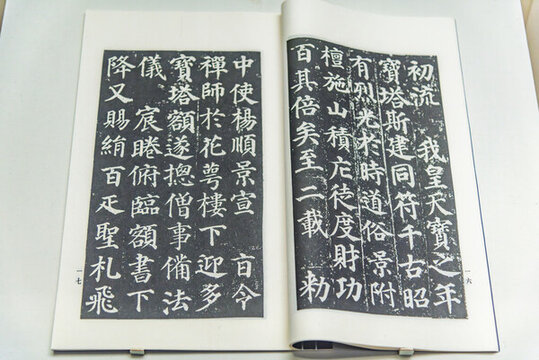 初流 我皇天寶之年
寶塔斯建同符千古昭
有烈光於時道俗景附
檀施山積庀徒度財功
百其倍矣至二載 勑
一六
中使楊順景宣 旨令
禪師於花萼樓下迎多
寶塔額遂摠僧事備法
儀 宸睠俯臨額書下
降又賜絹百疋聖札飛
一七